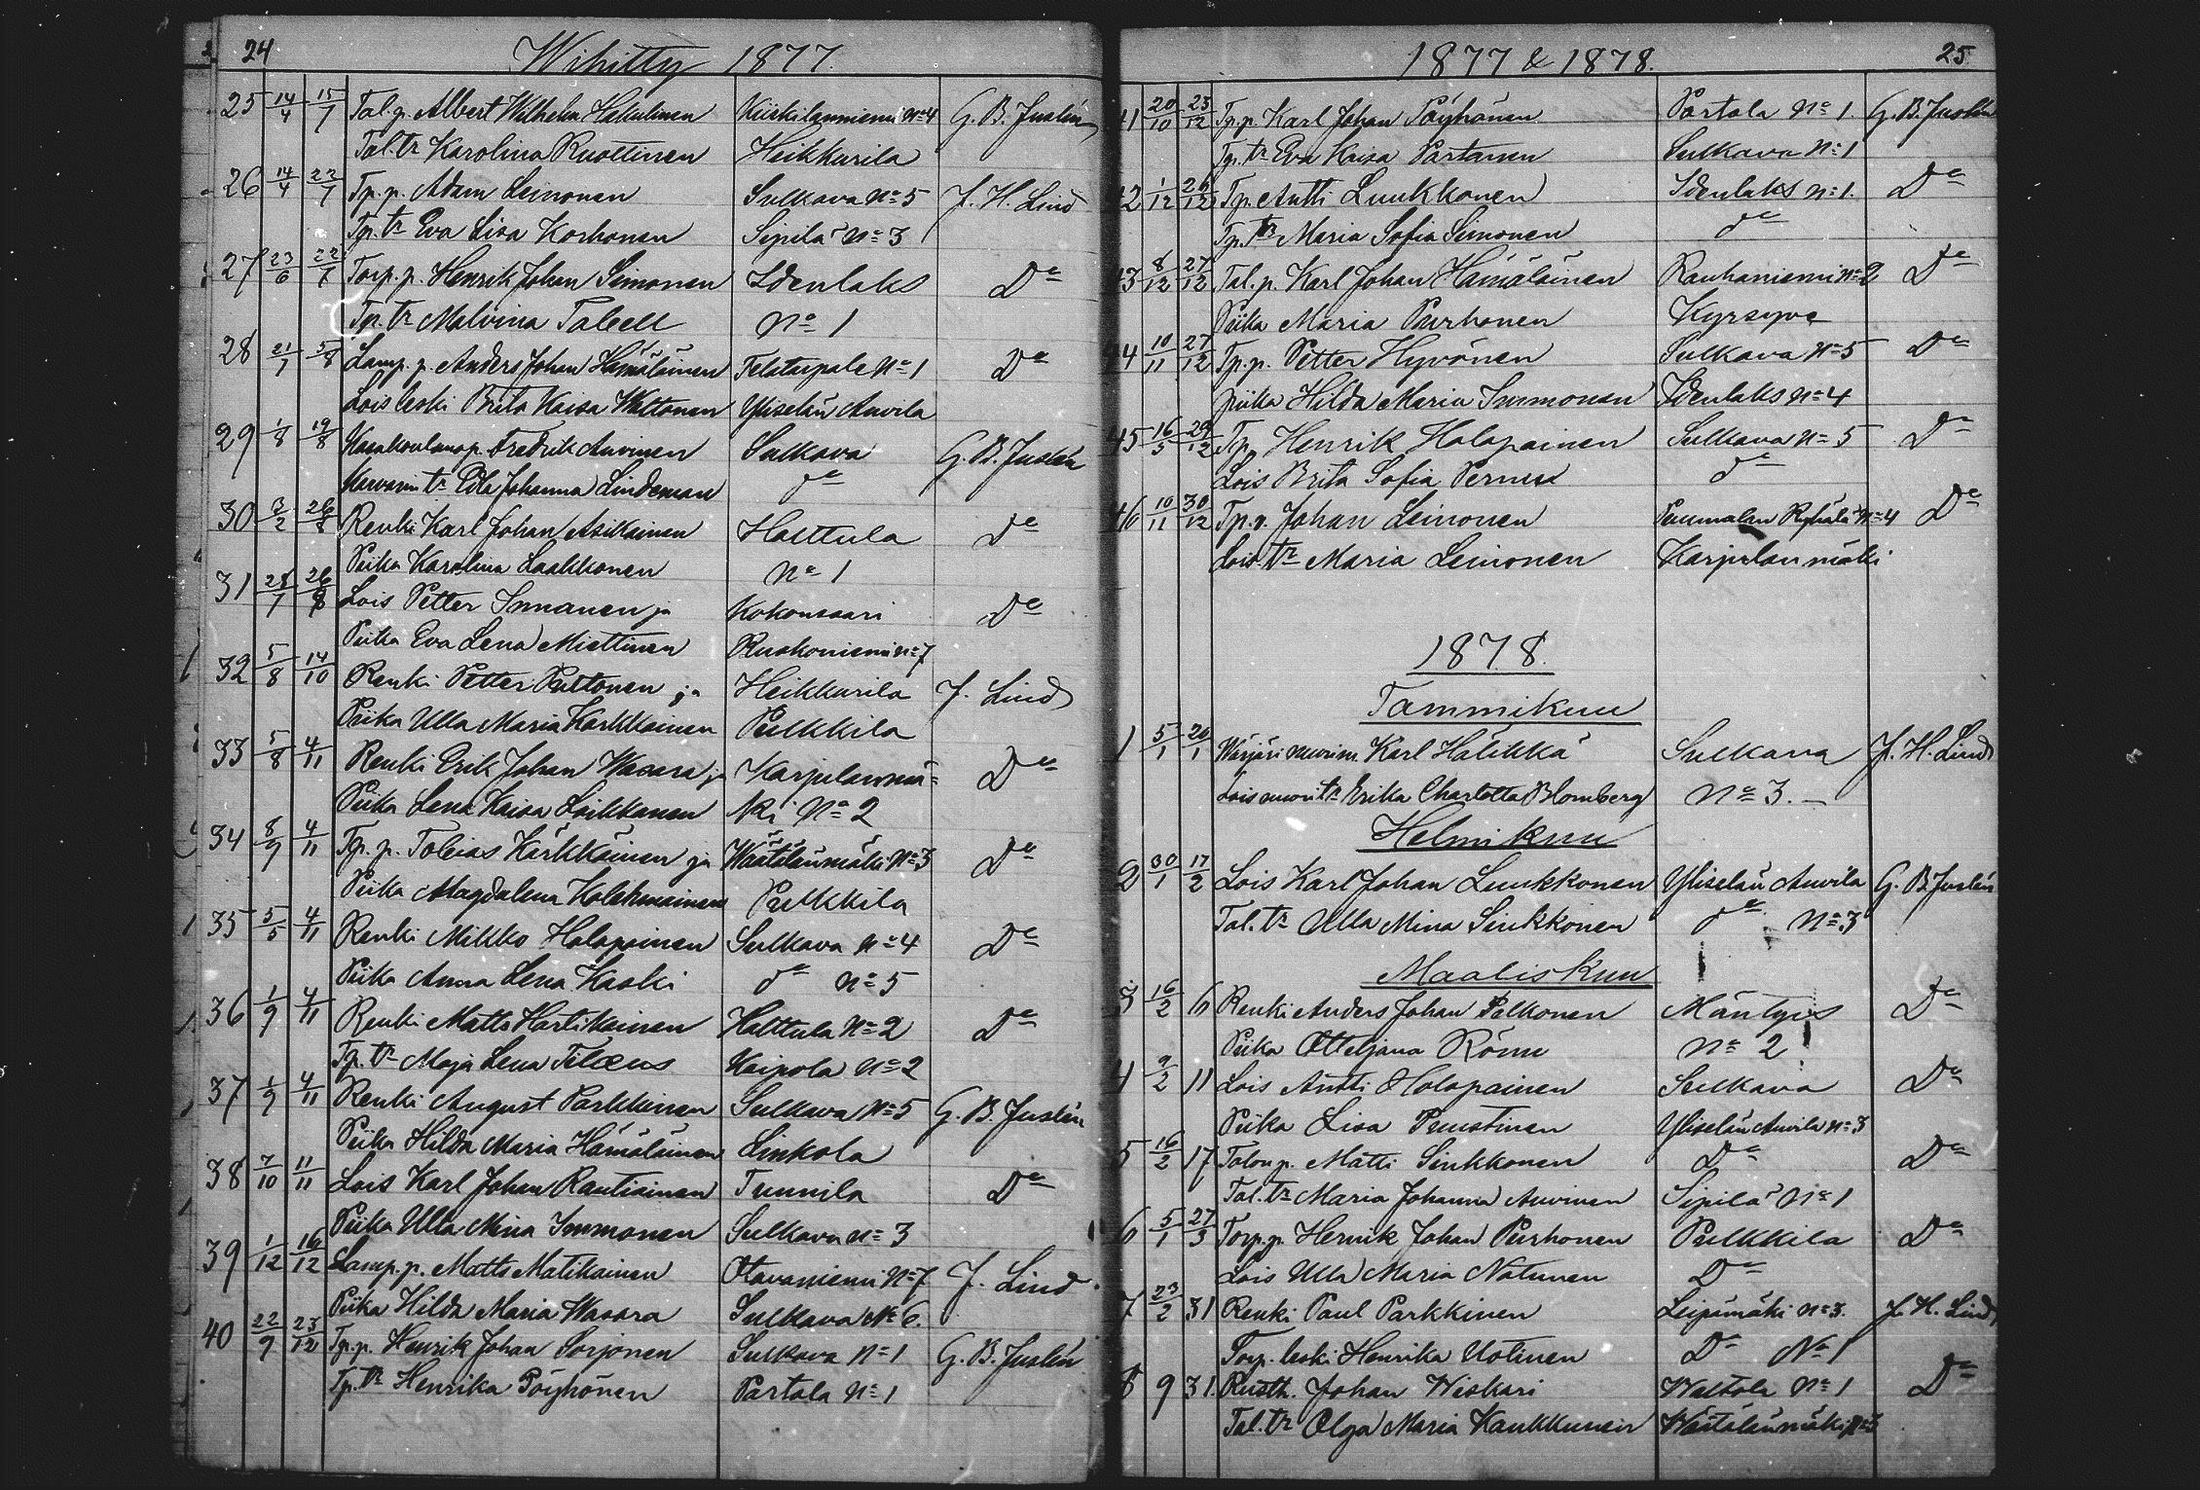 24 Wihitty 1877.
25 14/4 15/7 Tal. p. Albert Wilhelm Hakulinen Kiiskilanniemi No 4 G. B. Juslén
Tal. tr Karolina Ruottinen Heikkurila
26 14/4 22/7 Tp. p. Adam Leinonen Sulkava No 5 J. H. Lind
Tp. tr Eva Lisa Korhonen Sipilä No 3
27 23/6 22/7 Torp. p. Henrik Johan Simonen Idenlaks Do
Tp. tr Malvina Taleell No 1
28 21/7 5/8 Lamp. p. Anders Johan Hämäläinen Telataipale No 1 Do
Lois leski Brita Kaisa Waltonen Yliselän Auvila
29 1/8 19/8 Fredrik Auvinen Sulkava G. B. Juslén
tr Edla Johanna Lindeman do
30 3/2 26/8 Renki Karl Johan Asikainen Halttula Do
Piika Karolina Laakkonen No 1
31 28/7 26/8 Lois Petter Innanen ja Kokonsaari Do
Piika Eva Lena Miettinen Ruokoniemi No 7
32 5/8 14/10 Renki Petter Puttonen ja Heikkurila J. Lind
Piika Ulla Maria Karkkainen Pulkkila
33 5/8 4/11 Renki Erik Johan Wasara ja Karjulanmä= Do
Piika Lena Kaisa Loikkanen ki No 2
34 8/9 4/11 Tp. p. Tobias Kärkkäinen ja Wäätälänmäki No 3 Do
Piika Magdalena Kolehmainen Pulkkila
35 5/5 4/11 Renki Mikko Holopainen Sulkava No 4 Do
Piika Anna Lena Kaski do No 5
36 1/9 4/11 Renki Matts Hartikainen Halttula No 2 Do
Tp. tr Maja Lena Tilæus Kaipola No 2
37 1/9 4/11 Renki August Parkkinen Sulkava No 5 G. B. Juslén
Piika Hilda Maria Hämäläinen Linkola
38 7/10 11/11 Lois Karl Johan Rautiainen Tunnila Do
Piika Ulla Mina Immonen Sulkava No 3
39 1/12 16/12 Lamp. p. Matts Matikainen Otavaniemi No 7 J. Lind
Piika Hilda Maria Wasara Sulkava No 6.
40 22/9 23/12 Tp. p. Henrik Johan Sorjonen Sulkava No 1 G. B. Juslén
Tp. tr Henrika Pöyhönen Partala No 1
1877 & 1878. 25
41 20/10 23/12 Tp. p. Karl Johan Pöyhönen Partala No 1. G. B. Juslén
Tp. tr Eva Kaisa Partanen Sulkava No 1
42 1/12 26/12 Tp. Antti Luukkonen Idenlaks No 1. Do
Tp. tr Maria Sofia Simonen do
43 8/12 27/12 Tal. p. Karl Johan Hämäläinen Rauhaniemi No 2 Do
Piika Maria Purhonen Kyrsyve
44 10/11 27/12 Tp. p. Petter Hyvönen Sulkava No 5 Do
piika Hilda Maria Immonen Idenlaks No 4
45 16/3 29/12 Tp. Henrik Holopainen Sulkava No 5 Do
Lois Brita Sofia do
46 10/11 30/12 Tp. p. Johan Leinonen Puumalan Ryhälä No 4 Do
Lois. tr Maria Leinonen Karjulanmäki
1878.
Tammikuu
1 5/1 20/1 Karl Hälikkä Sulkava J. H. Lind
Erika Charlotta Blomberg No 3. —
Helmikuu
2 30/1 17/2 Lois Karl Johan Luukkonen Yliselän Auvila G. B. Juslén
Tal. tr Ulla Mina Sinkkonen do No 3
Maaliskuu
3 16/2 6 Renki Anders Johan Pelkonen Mäntyis Do
Piika Otteljana Römu No 2
4 9/2 11 Lois Antti Holopainen Sulkava Do
Piika Lisa Puustinen Yliselän Auvila No 3
5 16/2 17 Talon p. Matti Sinkkonen Do Do
Tal. tr Maria Johanna Auvinen Sipilä No 1
6 5/1 27/3 Torp. p. Henrik Johan Purhonen Pulkkila Do
Lois Ulla Maria Natunen Do
7 23/2 31 Renki Paul Parkkinen Leipämäki No 3. J. H. Lind
Torp. leski Henrika Uotinen Do No 1
8 9 31. Rusth. Johan Wiskari Waltola No 1 Do
Tal. tr Olga Maria Kaukkunein Wäätälänmäki No 3